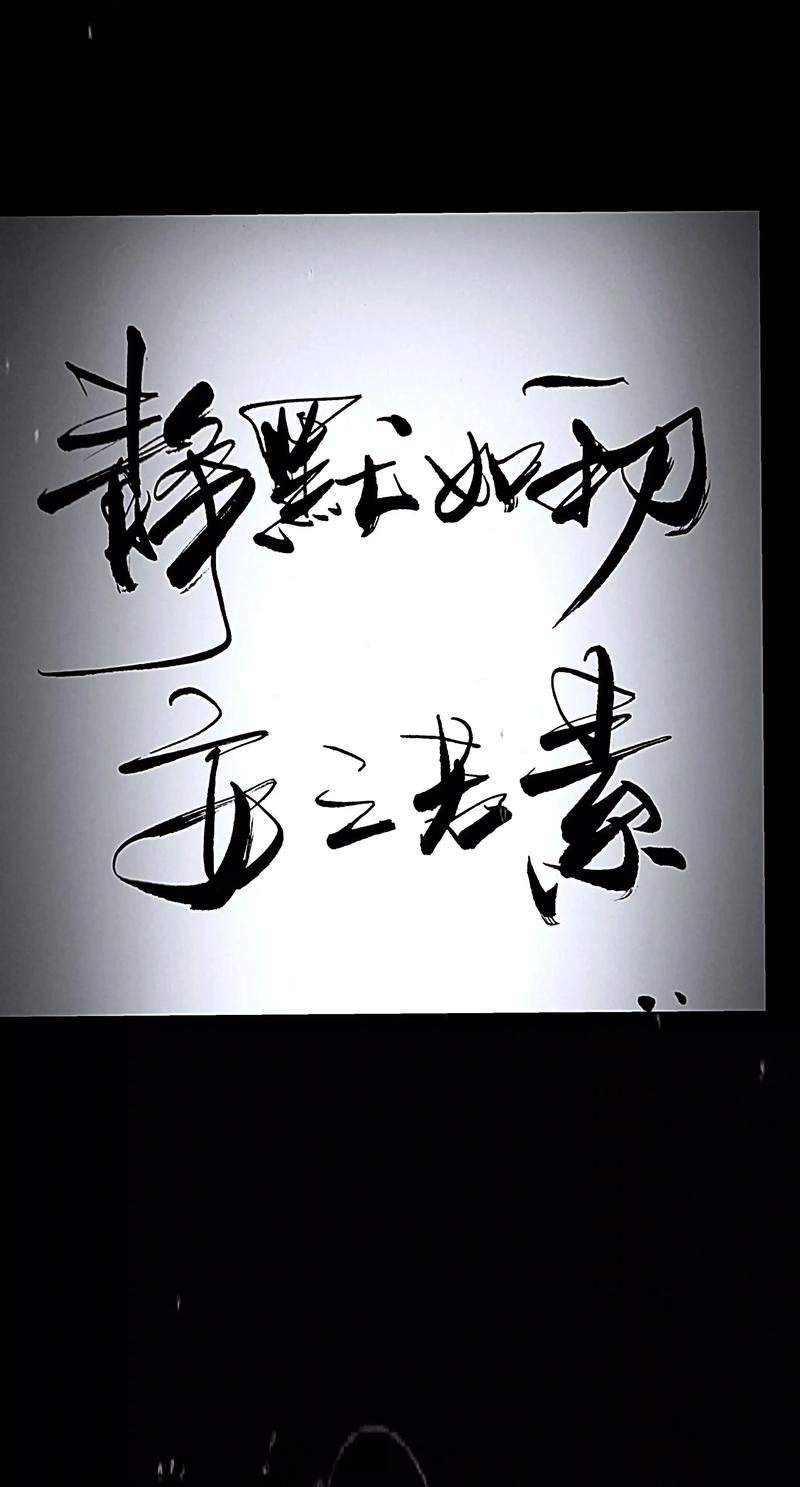 静默如初
安之若素